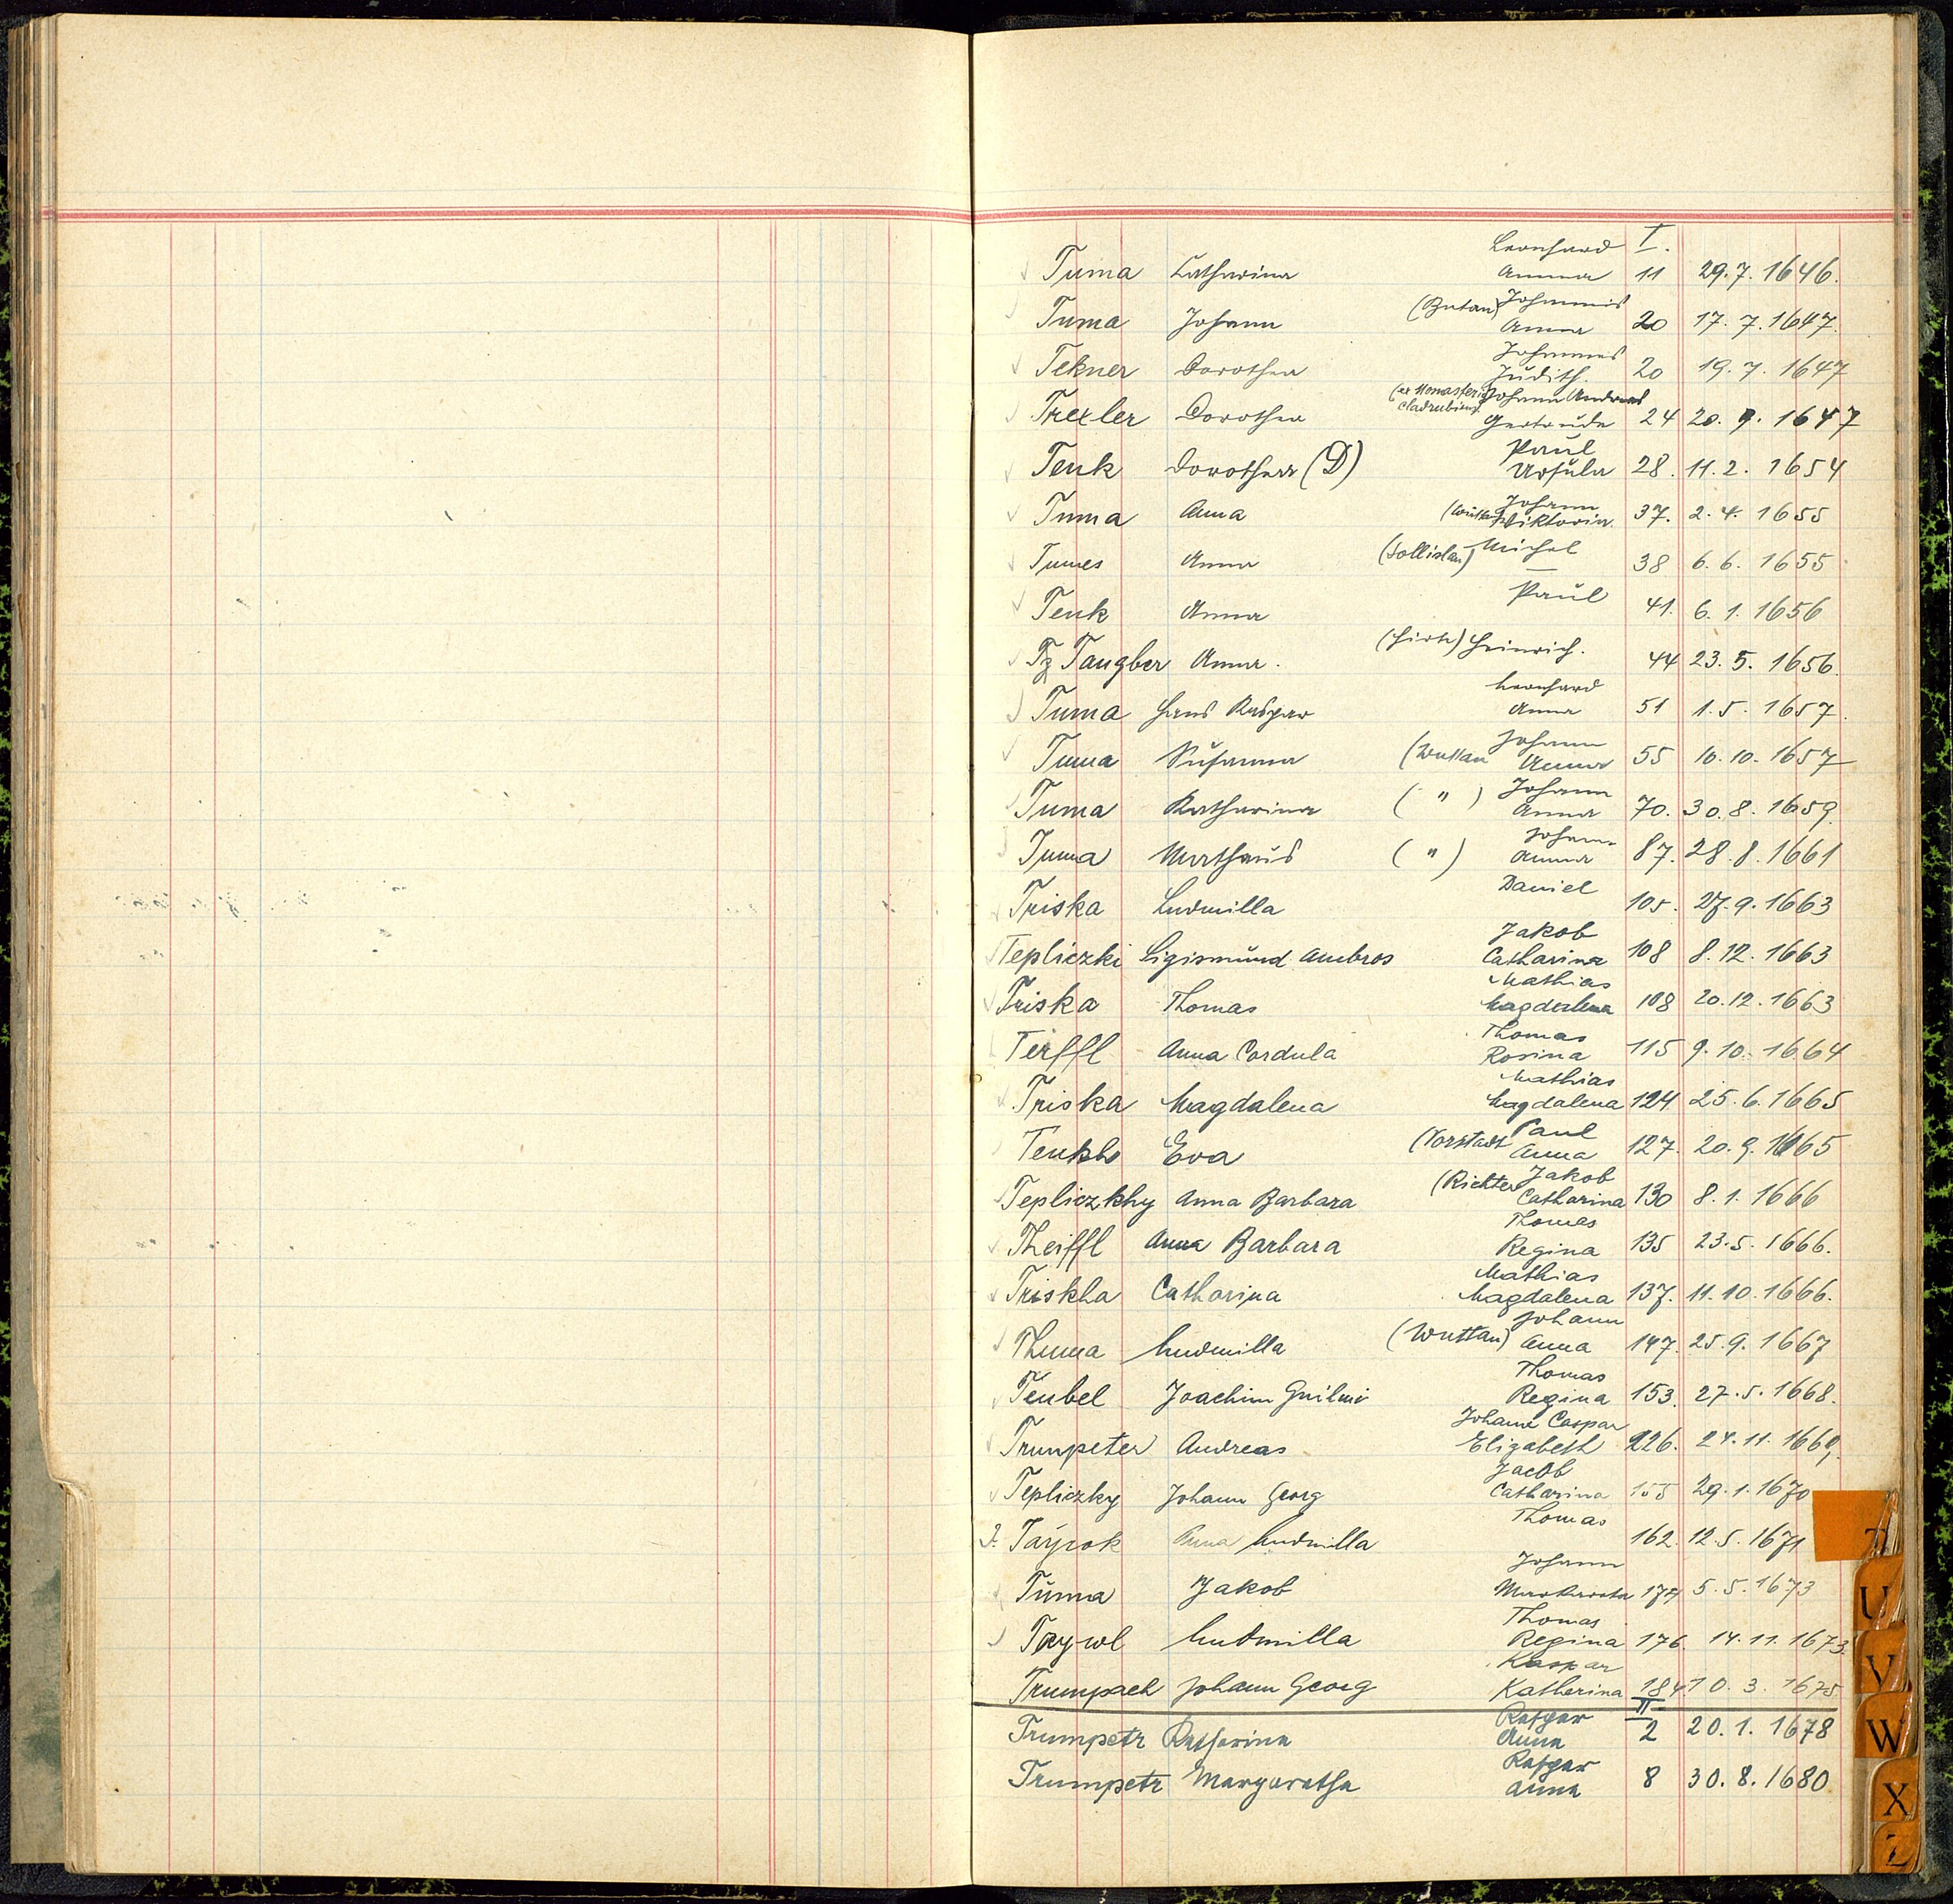 Leonhard I.
Tuma Catharina Anna 11 29.7.1646.
Johannes
Tuma Johann Anna 20 17.7.1647.
Johannes
Tekner Dorothea Judith. 20 19.7.1647
(ex Monasterio Johann Andreas
Cladrubiens.
Trexler Dorothea Gertrude 24 20.9.1647
Paul
Tenk Dorothea (D) Ursula 28. 11.2.1654
Johann
Tuma Anna Viktoria. 37. 2.4.1655
Michel
Tumes Anna — 38 6.6.1655
Paul
Tenk Anna 41. 6.1.1656
(Hirte) Heinrich.
Tz Taugber Anna. 44 23.5.1656.
Leonhard
Tuma Hans Kaspar Anna 51 1.5.1657.
Johann
Tuma Susanna (Wuttau Anna 55 10.10.1657
Johann
Tuma Katharina ( " ) Anna 70. 30.8.1659.
Johann
Tuma Mathaus ( " ) Anna 87. 28.8.1661
Daniel
Triska Ludmilla 105. 27.9.1663
Jakob
Tepliczki Sigismund Ambros Catharina 108 8.12.1663
Mathias
Triska Thomas Magdalena 108 20.12.1663
Thomas
Teiffl Anna Cordula Rosina 115 9.10.1664
Mathias
Triska Magdalena Magdalena 124 25.6.1665
Paul
Tenkh Eva (Vorstadt Anna 127. 20.9.1665
Jakob
Tepliczkhy Anna Barbara (Richter Catharina 130 8.1.1666
Thomas
Theiffl Anna Barbara Regina 135 23.5.1666.
Mathias
Triskha Catharina Magdalena 137. 11.10.1666.
Johann
Thuma Ludmilla (Wuttau) Anna 147. 25.9.1667
Thomas
Teubel Joachim Regina 153. 27.5.1668.
Johann Caspar
Trumpeter Andreas Elizabeth 226. 24.11.1669
Jacob
Tepliczky Johann Georg Catharina 155 29.1.1670
Thomas
Anna Ludmilla 162. 12.5.1671
Johann
Tuma Jakob 5.5.1673
Thomas
Taywl Ludmilla Regina 176. 14.11.1673.
Kaspar
Trumpach Johann Georg Katherina 184 10.3.1675.
II
Kaspar
Trumpetr Katharina Anna 2 20.1.1678
Kaspar
Trumpetr Margaretha Anna 8 30.8.1680
U
V
W
X
Z